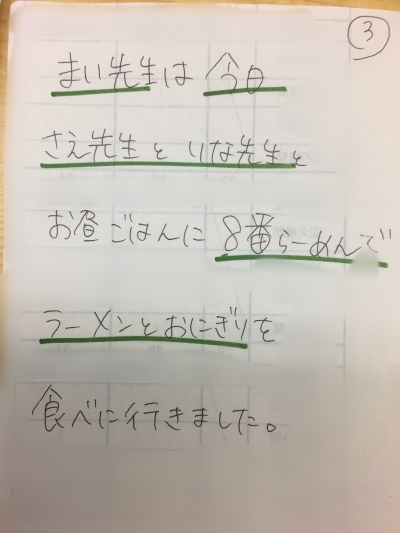 ③
まい先生は 今日
さえ先生と いな先生と
お昼ごはんに 8番らーめんで
ラーメンとおにぎりを
食べに行きました。